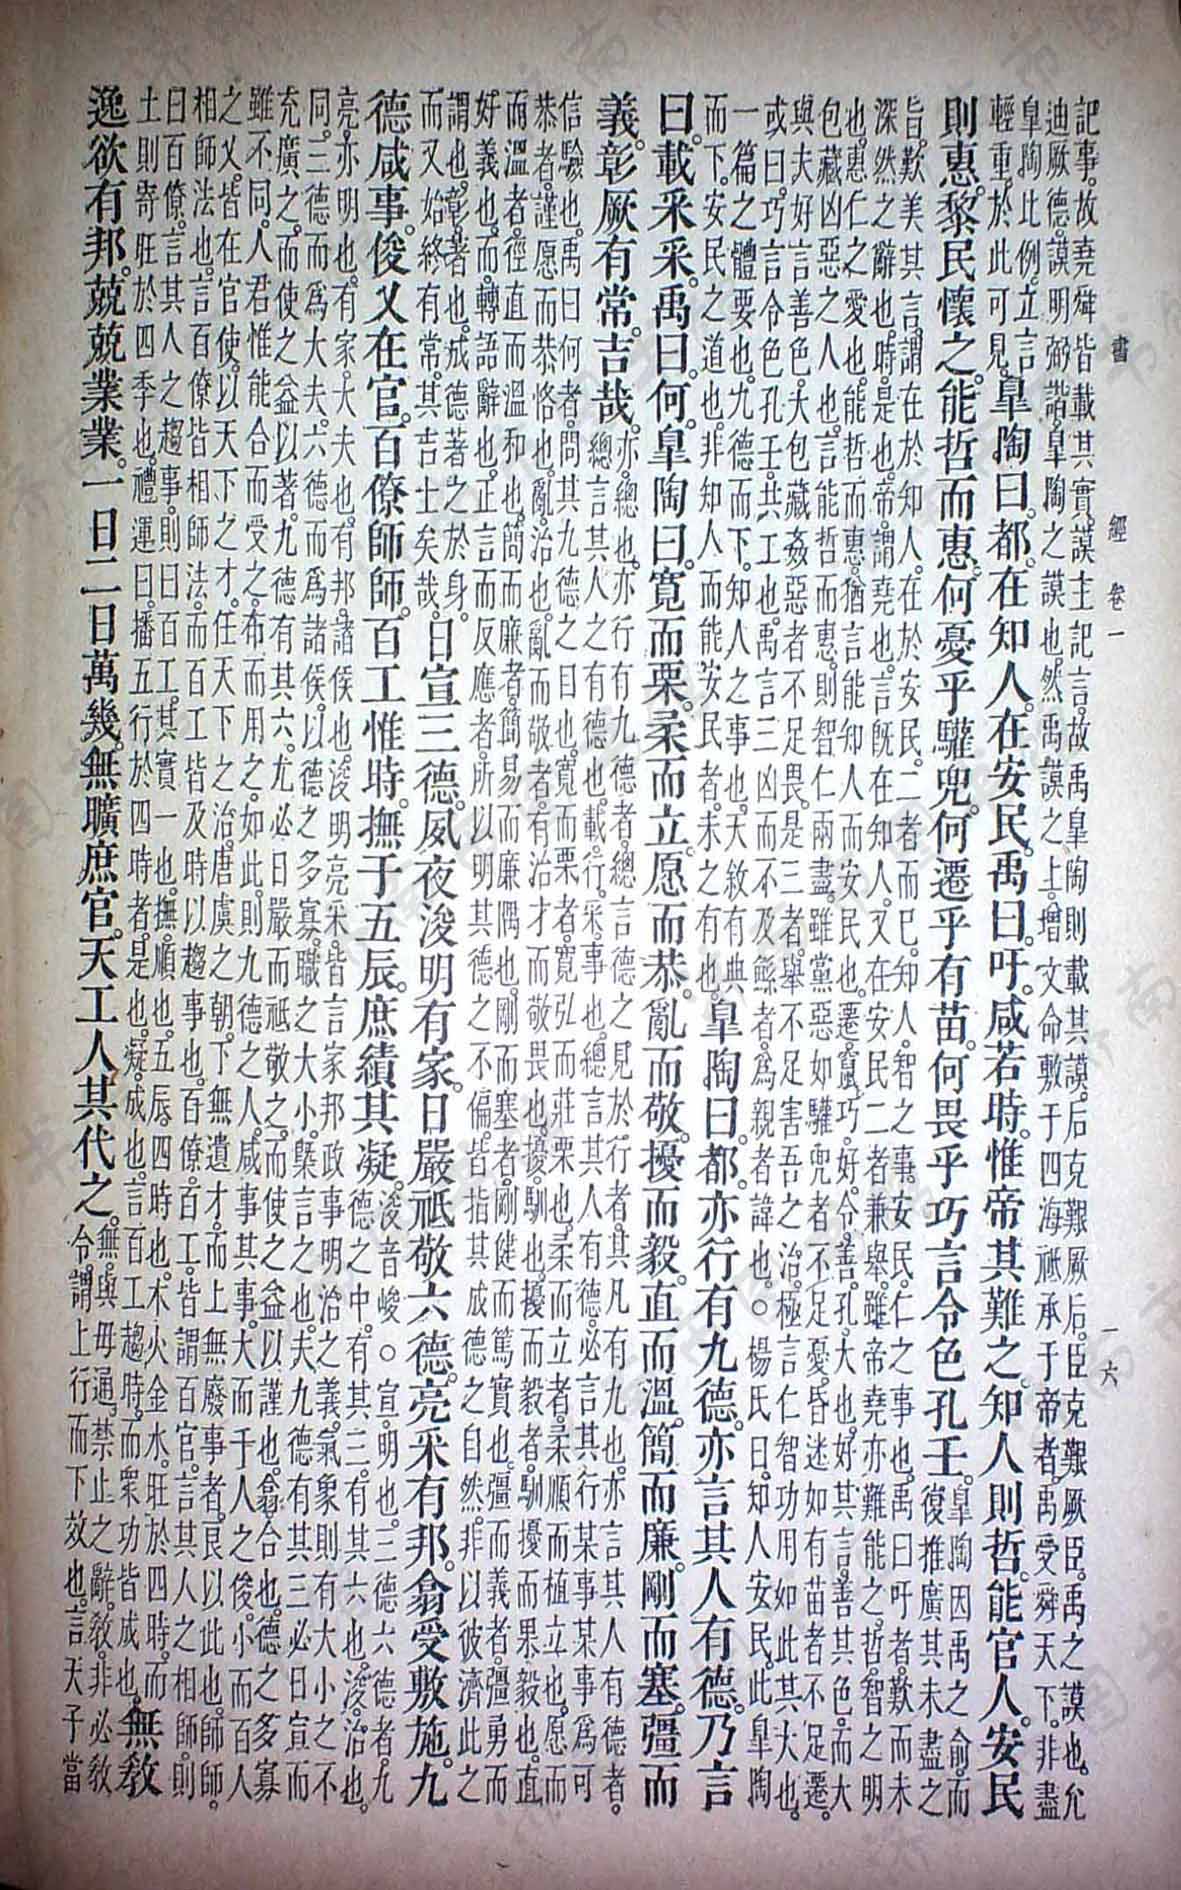 書 經 卷一 一六
記事。故堯舜皆載其實。謨主記言。故禹皐陶則載其謨。后克艱厥后。臣克艱厥臣。禹之謨也。允
迪厥德。謨明弼諧。皐陶之謨也。然禹謨之上。增文命敷于四海祗承于帝者。禹受舜天下。非盡
皐陶比例。立言
輕重。於此可見。
皐陶曰。都。在知人。在安民。禹曰。吁。咸若時。惟帝其難之。知人則哲。能官人。安民
則惠。黎民懷之。能哲而惠。何憂乎驩兜。何遷乎有苗。何畏乎巧言令色孔壬。
皐陶因禹之俞。而
復推廣其未盡之
旨。歎美其言。謂在於知人。在於安民。二者而已。知人。智之事。安民。仁之事也。禹曰吁者。歎而未
深然之辭也。時。是也。帝。謂堯也。言既在知人。又在安民。二者兼舉。雖帝堯亦難能之。哲。智之明
也。惠。仁之愛也。能哲而惠。猶言能知人而安民也。遷。竄。巧。好。令。善。孔。大也。好其言。善其色。而大
包藏凶惡之人也。言能哲而惠。則智仁兩盡。雖黨惡如驩兜者。不足憂。昏迷如有苗者。不足遷。
與夫好言善色。大包藏姦惡者。不足畏。是三者。舉不足害吾之治。極言仁智功用如此其大也。
或曰。巧言令色孔壬。共工也。禹言三凶而不及鯀者。爲親者諱也。○楊氏曰。知人安民。此皐陶
一篇之體要也。九德而下。知人之事也。天敘有典
而下。安民之道也。非知人而能安民者。未之有也。
皐陶曰。都。亦行有九德。亦言其人有德。乃言
曰。載采采。禹曰。何。皐陶曰。寬而栗。柔而立。愿而恭。亂而敬。擾而毅。直而溫。簡而廉。剛而塞。彊而
義。彰厥有常。吉哉。
亦。總也。亦行有九德者。總言德之見於行者。其凡有九也。亦言其人有德者。
總言其人之有德也。載。行。采。事也。總言其人有德。必言其行某事某事爲可
信驗也。禹曰何者。問其九德之目也。寬而栗者。寬弘而莊栗也。柔而立者。柔順而植立也。愿而
恭者。謹愿而恭恪也。亂。治也。亂而敬者。有治才而敬畏也。擾。馴也。擾而毅者。馴擾而果毅也。直
而溫者。徑直而溫和也。簡而廉者。簡易而廉隅也。剛而塞者。剛健而篤實也。彊而義者。彊勇而
好義也。而。轉語辭也。正言而反應者。所以明其德之不偏。皆指其成德之自然。非以彼濟此之
謂也。彰。著也。成德著之於身。
而又始終有常。其吉士矣哉。
日宣三德。夙夜浚明有家。日嚴祗敬六德。亮采有邦。翕受敷施。九
德咸事。俊乂在官。百僚師師。百工惟時。撫于五辰。庶績其凝。
浚音峻。○宣。明也。三德六德者。九
德之中。有其三。有其六也。浚。治也。
亮。亦明也。有家。大夫也。有邦。諸侯也。浚明亮采。皆言家邦政事明治之義。氣象則有大小之不
同。三德而爲大夫。六德而爲諸侯。以德之多寡。職之大小。槩言之也。夫九德有其三。必日宣而
充廣之。而使之益以著。九德有其六。尤必日嚴而祗敬之。而使之益以謹也。翕。合也。德之多寡
雖不同。人君惟能合而受之。布而用之。如此則九德之人。咸事其事。大而千人之俊。小而百人
之乂。皆在官使。以天下之才。任天下之治。唐虞之朝。下無遺才。而上無廢事者。良以此也。師師。
相師法也。言百僚皆相師法。而百工皆及時以趨事也。百僚百工。皆謂百官。言其人之相師。則
曰百僚。言其人之趨事。則曰百工。其實一也。撫。順也。五辰。四時也。木火金水。旺於四時。而
土則寄旺於四季也。禮運曰。播五行於四時者是也。凝。成也。言百工趨時。而衆功皆成也。
無教
逸欲有邦。兢兢業業。一日二日萬幾。無曠庶官。天工人其代之。
無。與毋通。禁止之辭。教。非必教
令。謂上行而下效也。言天子當